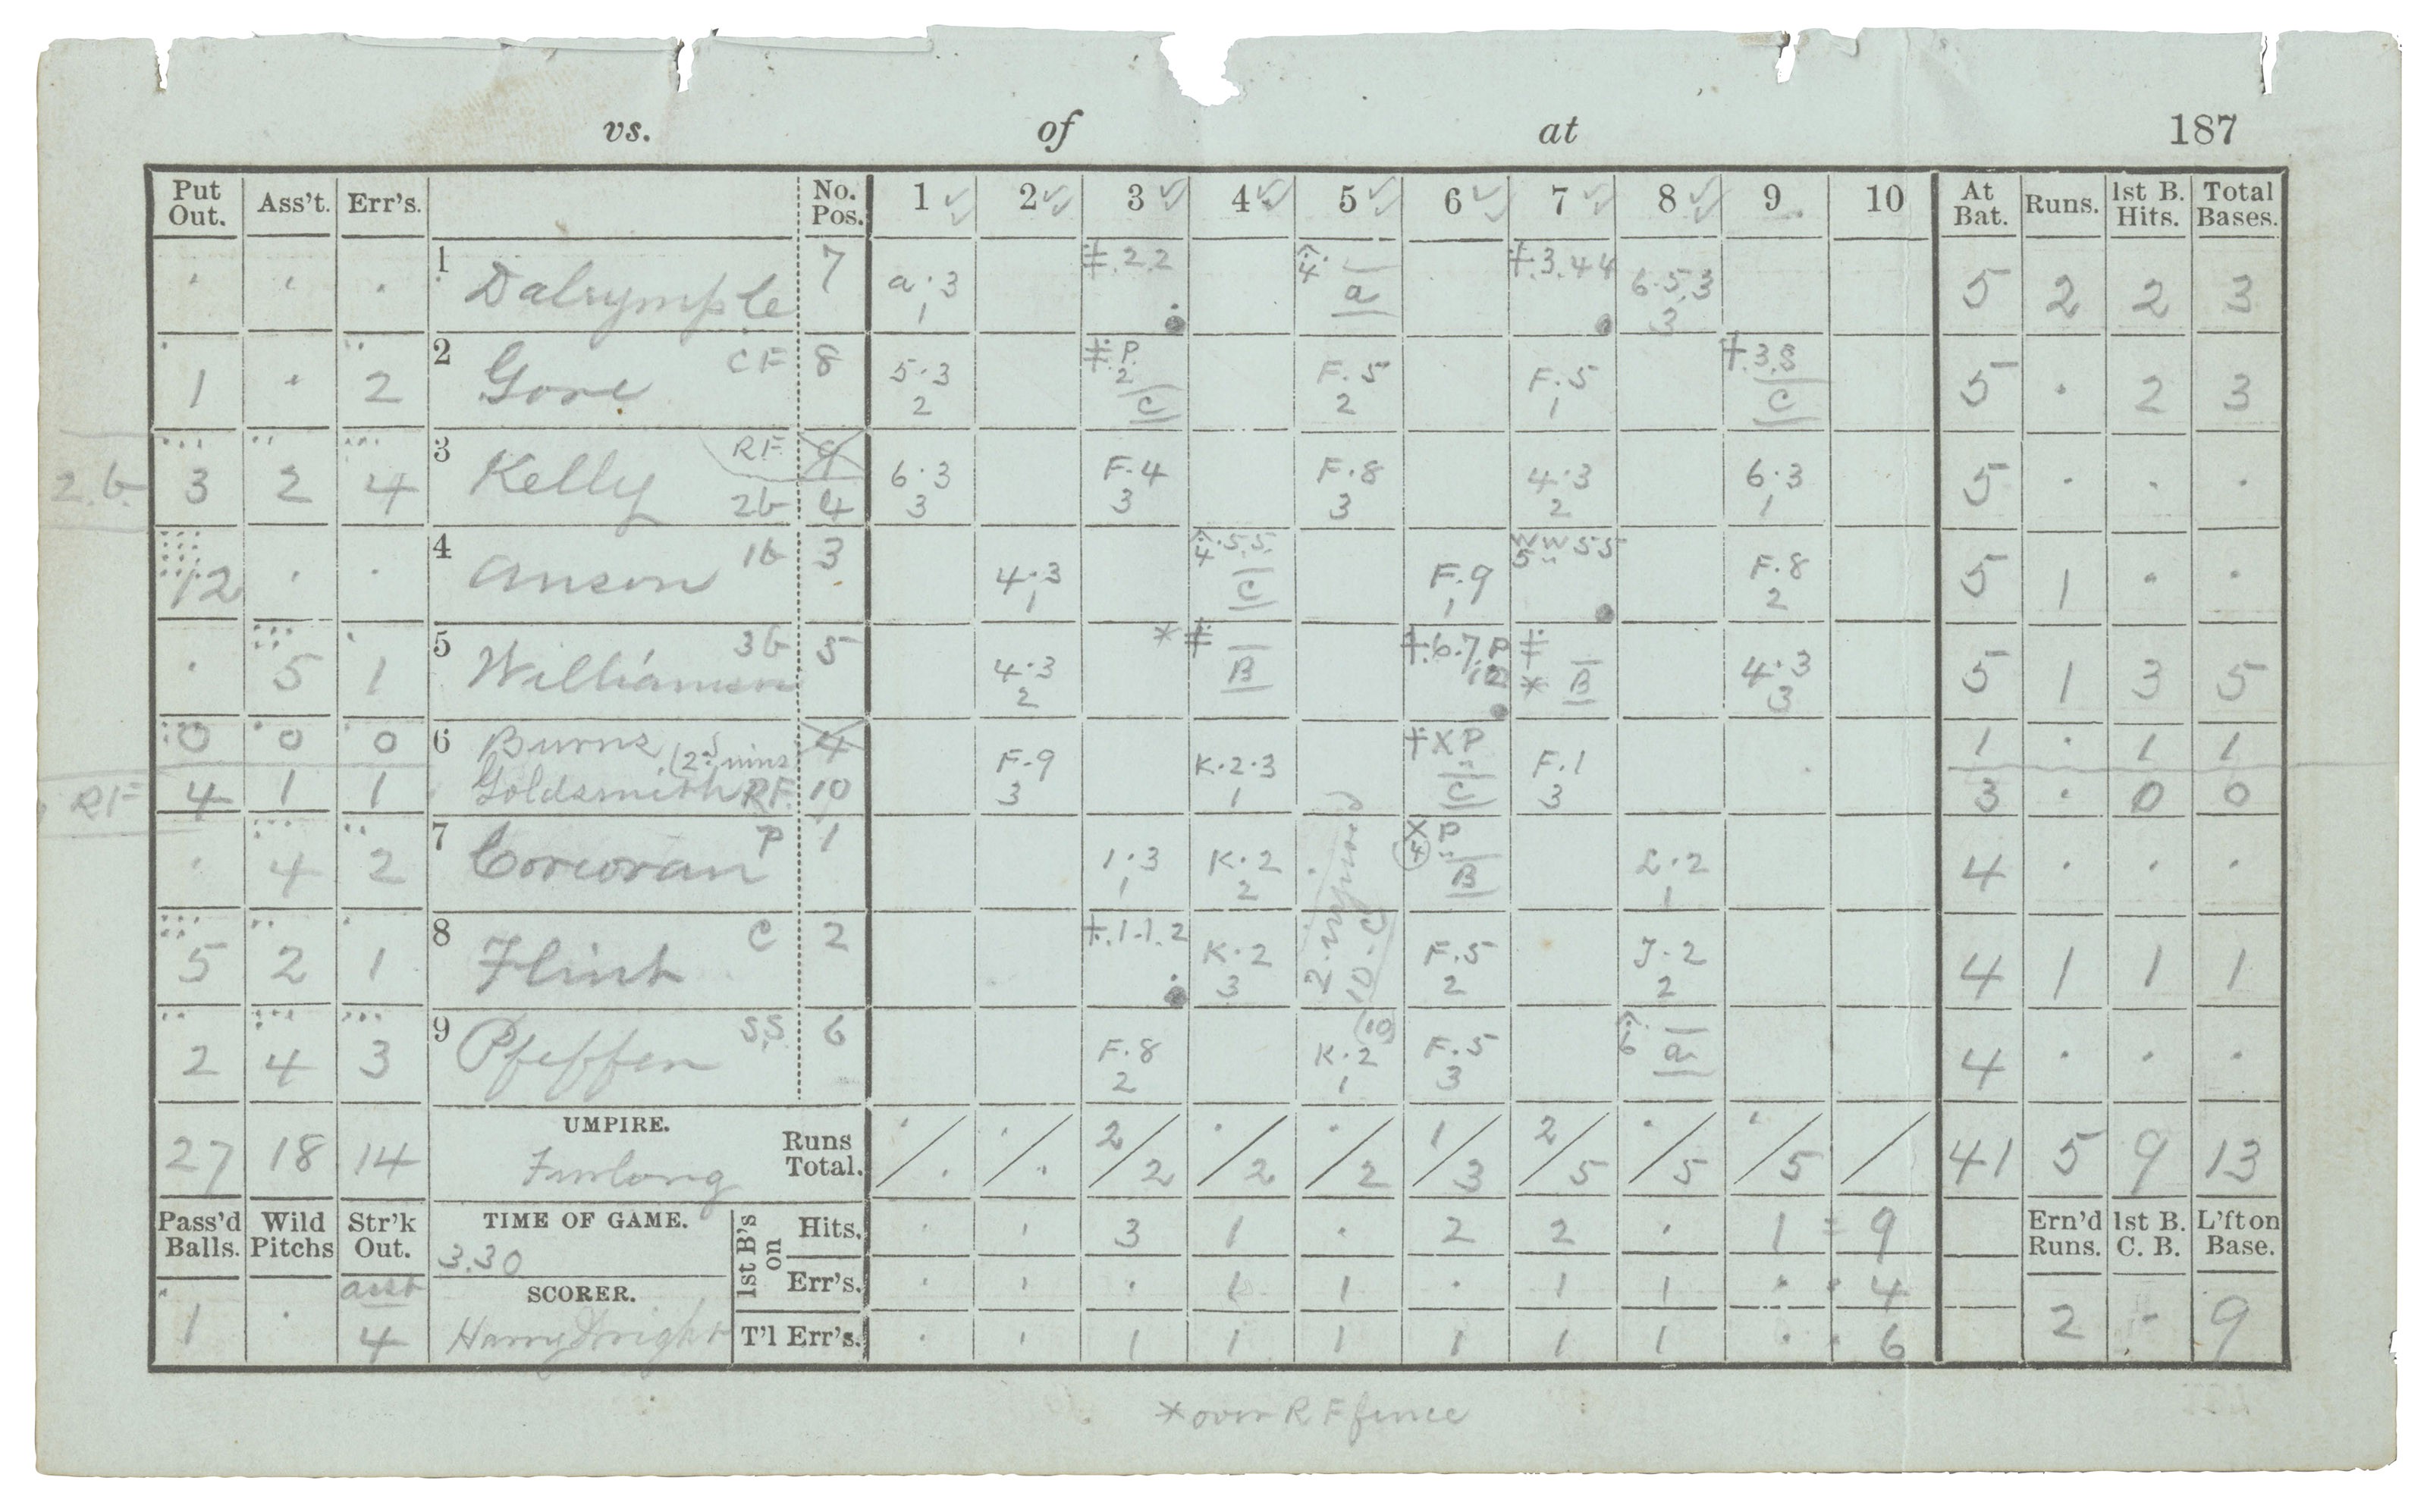 vs. of at 187
Put Out. Ass't. Err's. No. Pos. 1 2 3 4 5 6 7 8 9 10 At Bat. Runs. 1st B. Hits. Total Bases.
1 Dalrymple 7 a·3 1 ‡.2.2 4 a †.3.44 6·5.3 3 5 2 2 3
1 · 2 2 Gore CF 8 5·3 2 ‡ P. 2 C F.5 2 F.5 1 †.3.S C 5 · 2 3
2.b 3 2 4 3 Kelly RF 9 2b 4 6·3 3 F·4 3 F·8 3 4·3 2 6·3 1 5 · · ·
12 · · 4 Anson 1b 3 4·3 1 4·5.5. C F.9 1 W W 55 5 F.8 2 5 1 · ·
· 5 1 5 Williamson 3b 5 4·3 2 * ‡ B †.6.7.P ‡ * B 4·3 3 5 1 3 5
0 0 0 6 Burns (2 inns 4 F·9 3 K·2·3 1 † X P C F.1 3 1 · 1 1
RF 4 1 1 Goldsmith RF. 10 3 · 0 0
· 4 2 7 Corcoran P 1 1·3 1 K·2 2 2·injured 10-C X P 4 B L·2 1 4 · · ·
5 2 1 8 Flint C 2 †.1-1.2 K·2 3 F.5 2 J·2 2 4 1 1 1
2 4 3 9 Pfeffer S.S. 6 F.8 2 (10) K·2 1 F.5 3 6 a 4 · · ·
27 18 14 UMPIRE. Furlong Runs Total. ·/· ·/· 2/2 ·/2 ·/2 1/3 2/5 ·/5 ·/5 / 41 5 9 13
Pass'd Balls. Wild Pitchs Str'k Out. TIME OF GAME. 3.30 1st B's on Hits. · · 3 1 · 2 2 · 1 = 9 Ern'd Runs. 1st B. C. B. L'ft on Base.
asst SCORER. Err's. · · · 1 1 · 1 1 · · 4
1 · 4 Harry Wright T'l Err's. · · 1 1 1 1 1 1 · · 6 2 · 9
* over R F fence